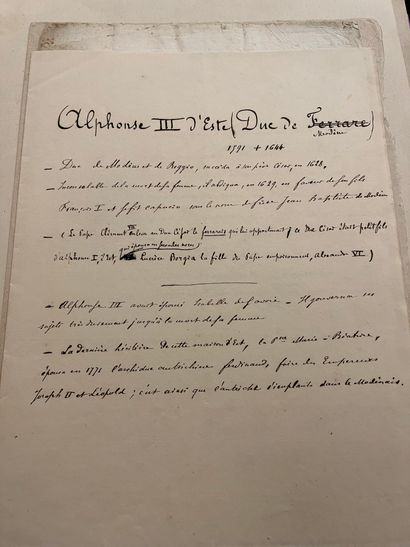 Alphonse III d'Este (Duc de Ferrare)
Modène
1591 + 1644
— Duc de Modène et de Reggio, succéda à son père César, en 1628,
— Inconsolable de la mort de sa femme, il abdiqua, en 1629, en faveur de son fils
François I et se fit capucin sous le nom de frère Jean Baptiste de Modène
— (Le Pape Clément VIII enleva au Duc César le ferrarais qui lui appartenait ; ce Duc César était petit fils
qui épousa en secondes noces
d'alphonse I, d'Est, Lucrèce Borgia la fille du Pape empoisonneur, Alexandre VI)
— Alphonse III avait épousé Isabelle de Savoie — Il gouverna ses
sujets très durement jusqu'à la mort de sa femme
— La dernière héritière de cette maison d'Est, la Pcsse Marie-Béatrice,
épousa en 1771 l'archiduc autrichien ferdinand, frère des Empereurs
Joseph II et Léopold ; c'est ainsi que l'autriche s'implanta dans le Modénais.